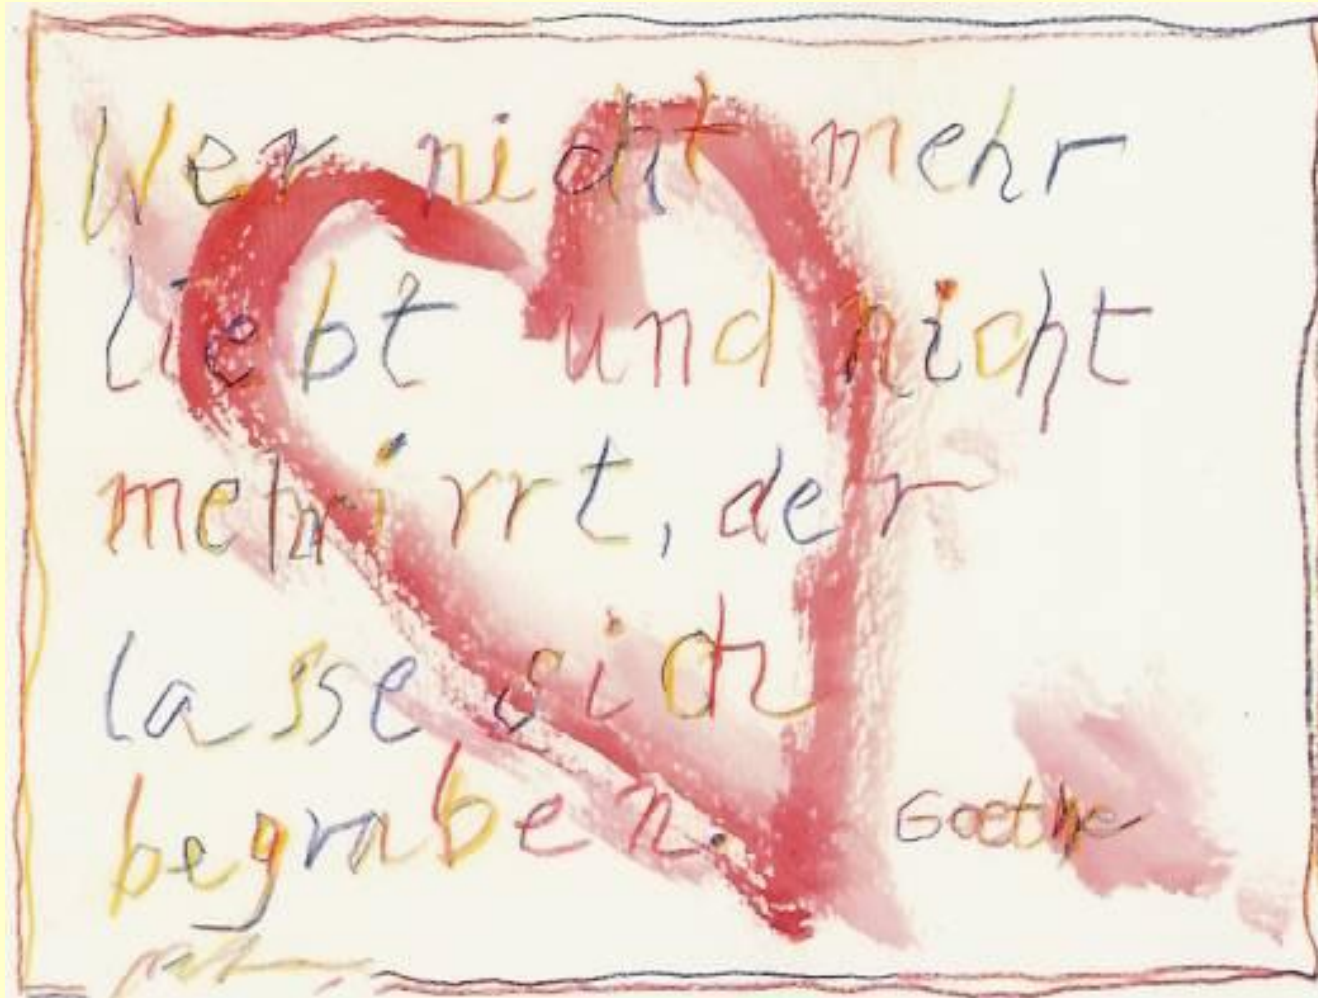 Wer nicht mehr
liebt und nicht
mehr irrt, der
lasse sich
begraben.
Goethe